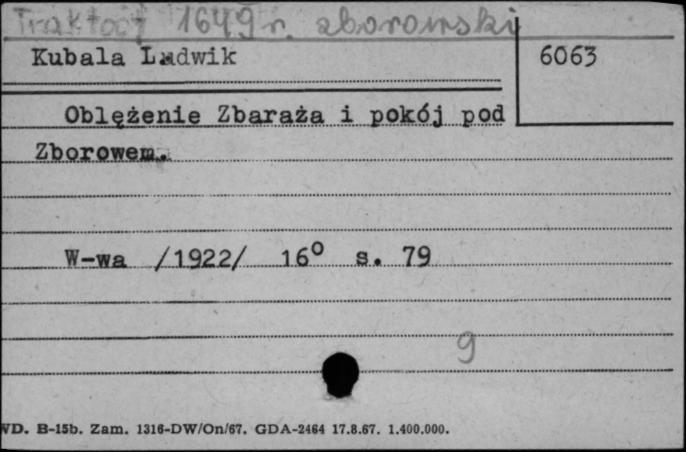 Traktat 1649 r. zborowski
Kubala Ludwik
6063
Oblężenie Zbaraża i pokój pod
Zborowem.
W-wa /1922/ 16° s. 79
9
WD. B-15b. Zam. 1316-DW/On/67. GDA-2464 17.8.67. 1.400.000.